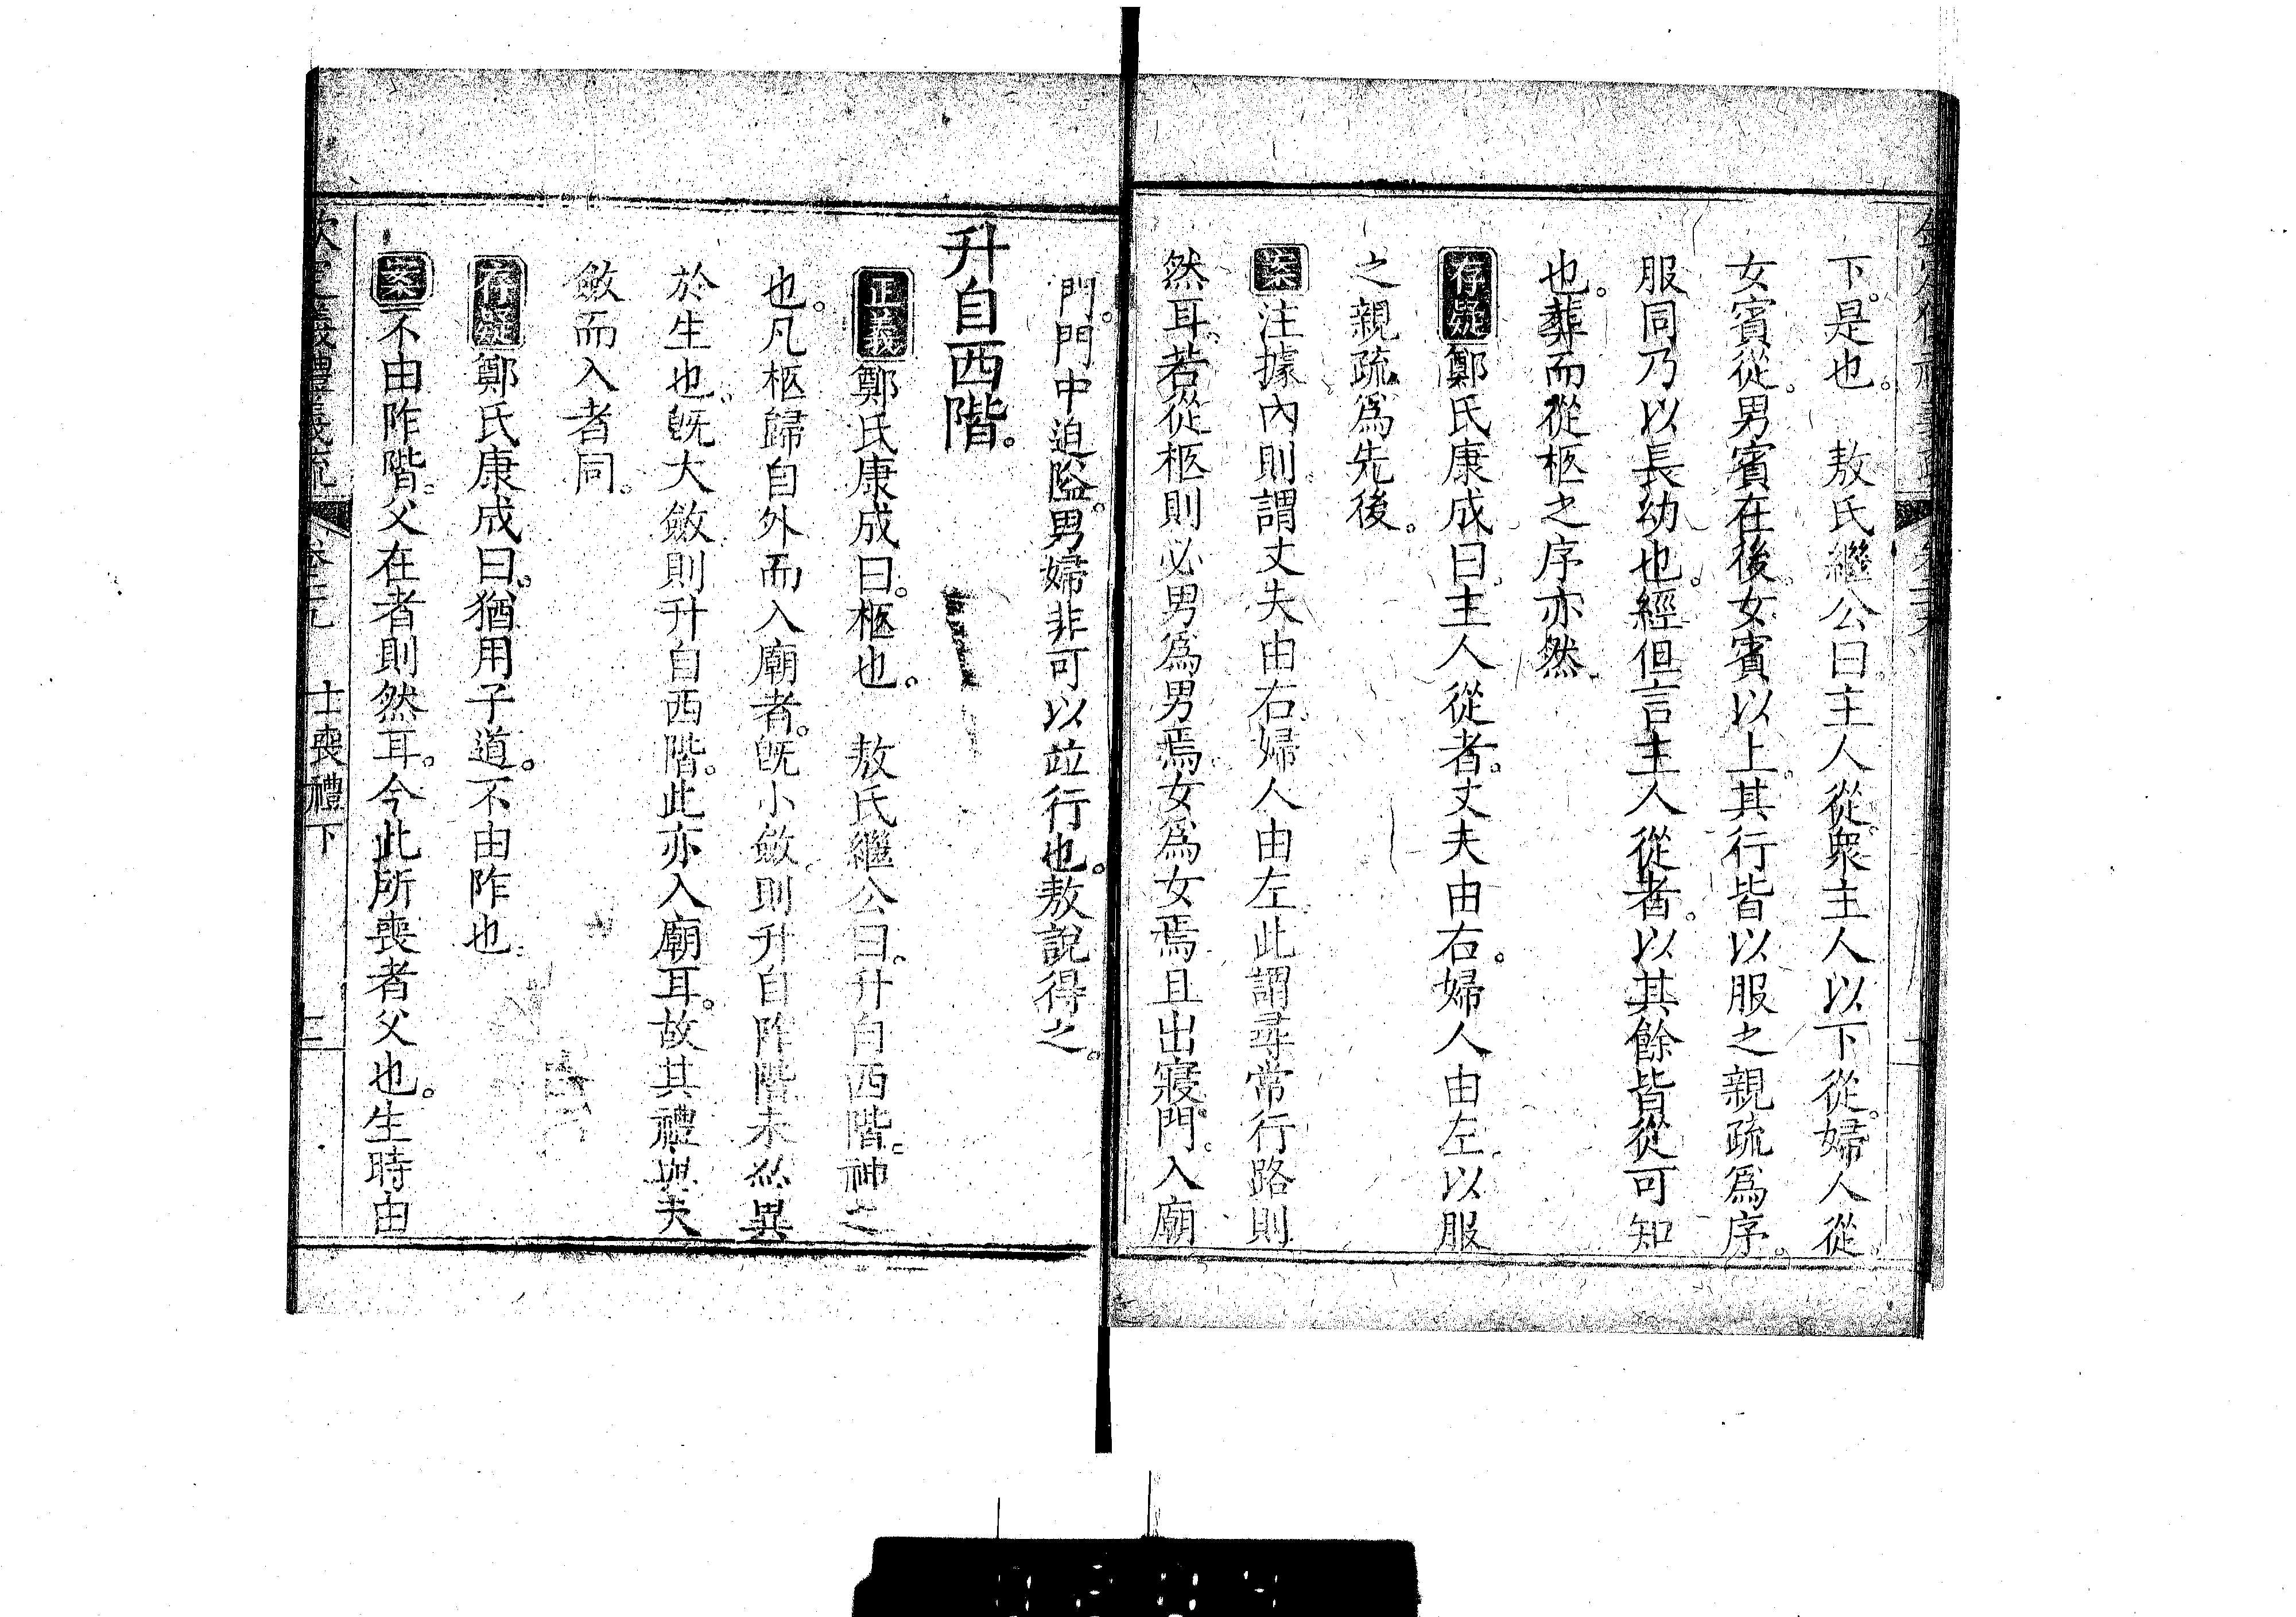 下。是也。　敖氏繼公曰。主人從。衆主人以下從。婦人從。
女賓從。男賓在後。女賓以上。其行皆以服之親疏爲序。
服同乃以長幼也。經但言主人從者。以其餘皆從可知
也。葬而從柩之序亦然。
存疑鄭氏康成曰。主人從者。丈夫由右。婦人由左。以服
之親疏爲先後。
案注據內則。謂丈夫由右。婦人由左。此謂尋常行路則
然耳。若從柩則必男爲男焉。女爲女焉。且出寢門。入廟
門。門中迫隘。男婦非可以竝行也。敖說得之。
升自西階。
正義鄭氏康成曰。柩也。　敖氏繼公曰。升自西階。神之
也。凡柩歸自外而入廟者。旣小斂。則升自阼階。未忍異
於生也。旣大斂則升自西階。此亦入廟耳。故其禮與夫
斂而入者同。
存疑鄭氏康成曰。猶用子道。不由阼也
案不由阼階。父在者則然耳。今此所喪者父也。生時由
士喪禮下